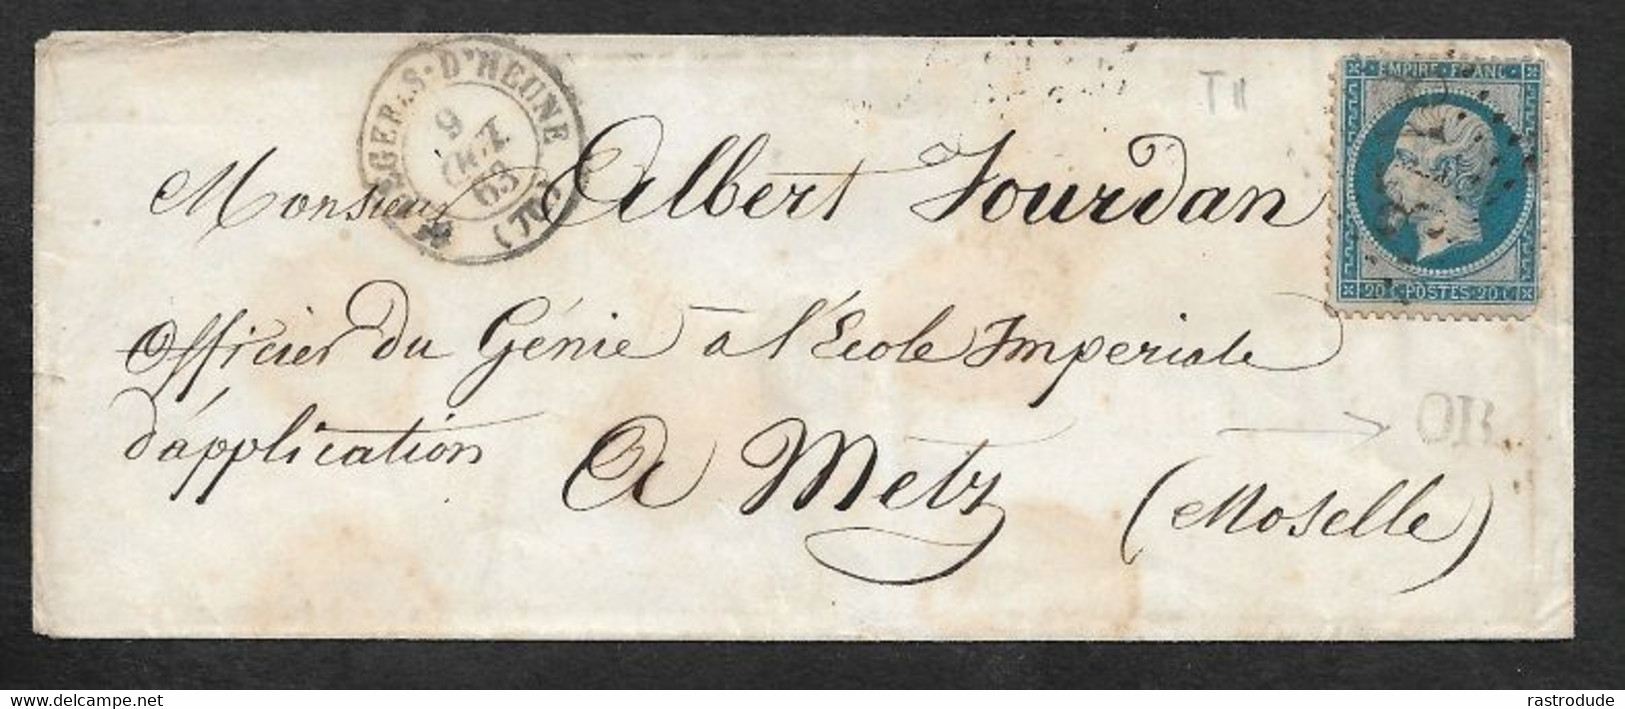 D'HEUNE
9
OCT
63
(70)
T II
EMPIRE · FRANC ·
20 C · POSTES · 20 C
Monsieur Albert Jourdan
Officier du Génie à l'École Imperiale
d'application
OR
A Metz
(Moselle)
delcampe.net
rastrodude